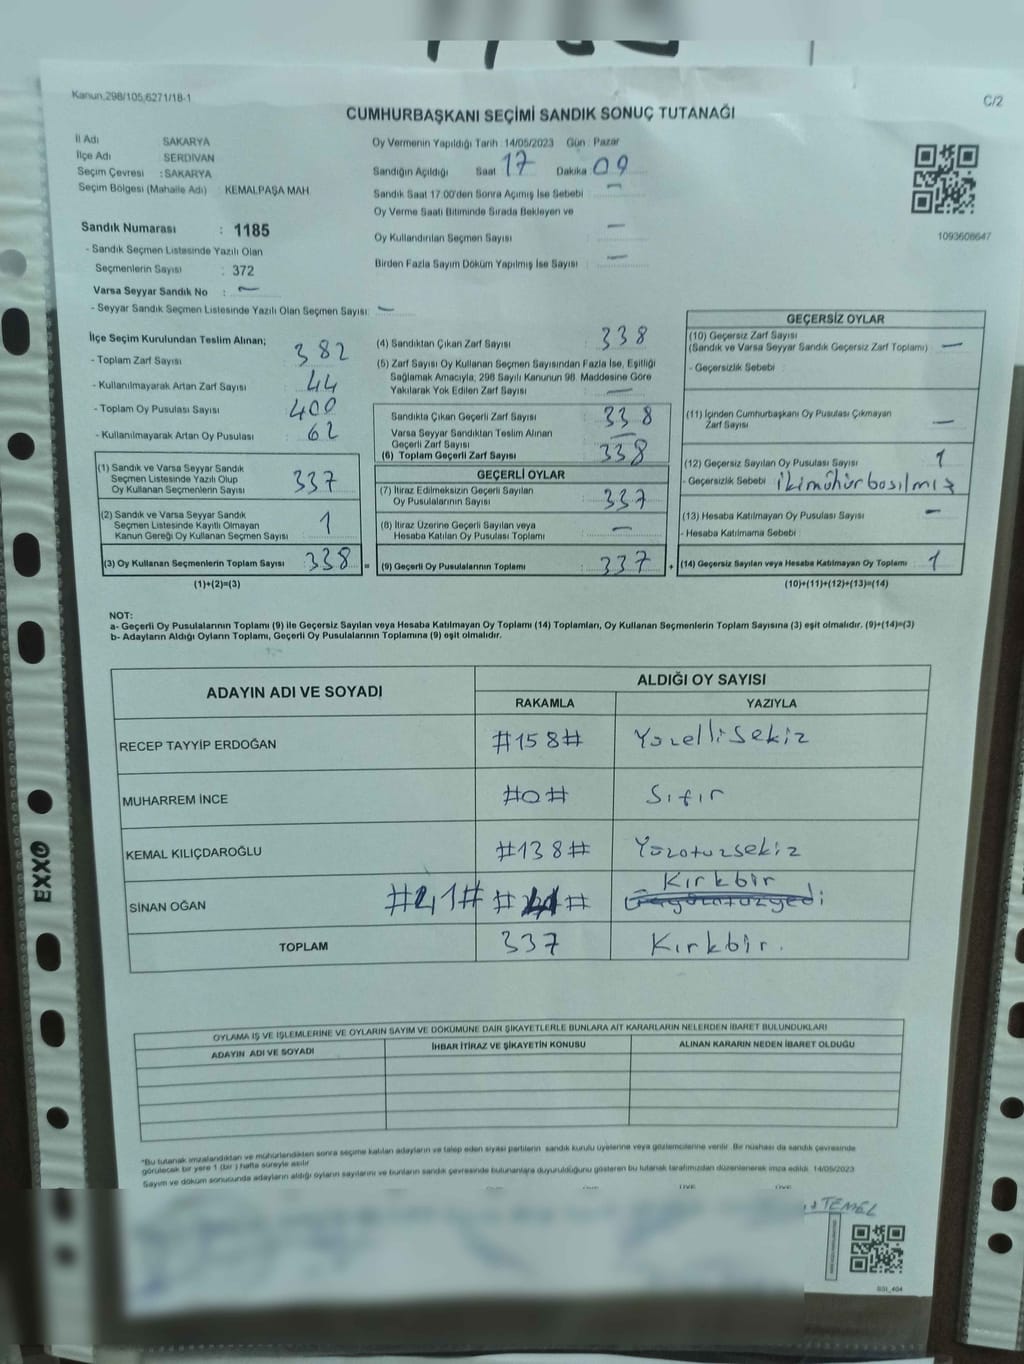 Kanun,298/105,6271/18-1
C/2
CUMHURBAŞKANI SEÇİMİ SANDIK SONUÇ TUTANAĞI
İl Adı SAKARYA
İlçe Adı SERDİVAN
Seçim Çevresi : SAKARYA
Seçim Bölgesi (Mahalle Adı) : KEMALPAŞA MAH.
Oy Vermenin Yapıldığı Tarih : 14/05/2023 Gün : Pazar
Sandığın Açıldığı Saat 17 Dakika 09
Sandık Saat 17:00'den Sonra Açımış İse Sebebi : —
Oy Verme Saati Bitiminde Sırada Bekleyen ve
Oy Kullandırılan Seçmen Sayısı : —
Birden Fazla Sayım Döküm Yapılmış İse Sayısı : —
1093608647
Sandık Numarası : 1185
- Sandık Seçmen Listesinde Yazılı Olan
Seçmenlerin Sayısı : 372
Varsa Seyyar Sandık No : —
- Seyyar Sandık Seçmen Listesinde Yazılı Olan Seçmen Sayısı: —
İlçe Seçim Kurulundan Teslim Alınan;
- Toplam Zarf Sayısı : 382
- Kullanılmayarak Artan Zarf Sayısı : 44
- Toplam Oy Pusulası Sayısı : 400
- Kullanılmayarak Artan Oy Pusulası : 62
(1) Sandık ve Varsa Seyyar Sandık
Seçmen Listesinde Yazılı Olup
Oy Kullanan Seçmenlerin Sayısı : 337
(2) Sandık ve Varsa Seyyar Sandık
Seçmen Listesinde Kayıtlı Olmayan
Kanun Gereği Oy Kullanan Seçmen Sayısı : 1
(3) Oy Kullanan Seçmenlerin Toplam Sayısı : 338 =
(1)+(2)=(3)
(4) Sandıktan Çıkan Zarf Sayısı : 338
(5) Zarf Sayısı Oy Kullanan Seçmen Sayısından Fazla İse, Eşitliği
Sağlamak Amacıyla; 298 Sayılı Kanunun 98. Maddesine Göre
Yakılarak Yok Edilen Zarf Sayısı : —
Sandıkta Çıkan Geçerli Zarf Sayısı : 338
Varsa Seyyar Sandıktan Teslim Alınan
Geçerli Zarf Sayısı : —
(6) Toplam Geçerli Zarf Sayısı : 338
GEÇERLİ OYLAR
(7) İtiraz Edilmeksizin Geçerli Sayılan
Oy Pusulalarının Sayısı : 337
(8) İtiraz Üzerine Geçerli Sayılan veya
Hesaba Katılan Oy Pusulası Toplamı : —
(9) Geçerli Oy Pusulalarının Toplamı : 337 +
GEÇERSİZ OYLAR
(10) Geçersiz Zarf Sayısı
(Sandık ve Varsa Seyyar Sandık Geçersiz Zarf Toplamı) : —
- Geçersizlik Sebebi :
(11) İçinden Cumhurbaşkanı Oy Pusulası Çıkmayan
Zarf Sayısı : —
(12) Geçersiz Sayılan Oy Pusulası Sayısı : 1
- Geçersizlik Sebebi : iki mühür basılmış
(13) Hesaba Katılmayan Oy Pusulası Sayısı : —
- Hesaba Katılmama Sebebi :
(14) Geçersiz Sayılan veya Hesaba Katılmayan Oy Toplamı : 1
(10)+(11)+(12)+(13)=(14)
NOT:
a- Geçerli Oy Pusulalarının Toplamı (9) ile Geçersiz Sayılan veya Hesaba Katılmayan Oy Toplamı (14) Toplamları, Oy Kullanan Seçmenlerin Toplam Sayısına (3) eşit olmalıdır. (9)+(14)=(3)
b- Adayların Aldığı Oyların Toplamı, Geçerli Oy Pusulalarının Toplamına (9) eşit olmalıdır.
ADAYIN ADI VE SOYADI
ALDIĞI OY SAYISI
RAKAMLA YAZIYLA
RECEP TAYYİP ERDOĞAN #158# Yüzellisekiz
MUHARREM İNCE #0# Sıfır
KEMAL KILIÇDAROĞLU #138# Yüzotuzsekiz
SİNAN OĞAN #41# # # Kırkbir
TOPLAM 337 Kırkbir.
OYLAMA İŞ VE İŞLEMLERİNE VE OYLARIN SAYIM VE DÖKÜMÜNE DAİR ŞİKAYETLERLE BUNLARA AİT KARARLARIN NELERDEN İBARET BULUNDUKLARI
ADAYIN ADI VE SOYADI İHBAR İTİRAZ VE ŞİKAYETİN KONUSU ALINAN KARARIN NEDEN İBARET OLDUĞU
*Bu tutanak imzalandıktan ve mühürlendikten sonra seçime katılan adayların ve talep eden siyasi partilerin sandık kurulu üyelerine veya gözlemcilerine verilir. Bir nüshası da sandık çevresinde
görülecek bir yere 1 (bir ) hafta süreyle asılır
Sayım ve döküm sonucunda adayların aldığı oyların sayılarını ve bunların sandık çevresinde bulunanlara duyurulduğunu gösteren bu tutanak tarafımızdan düzenlenerek imza edildi. 14/05/2023
TEMEL
SSI_404
EXXO